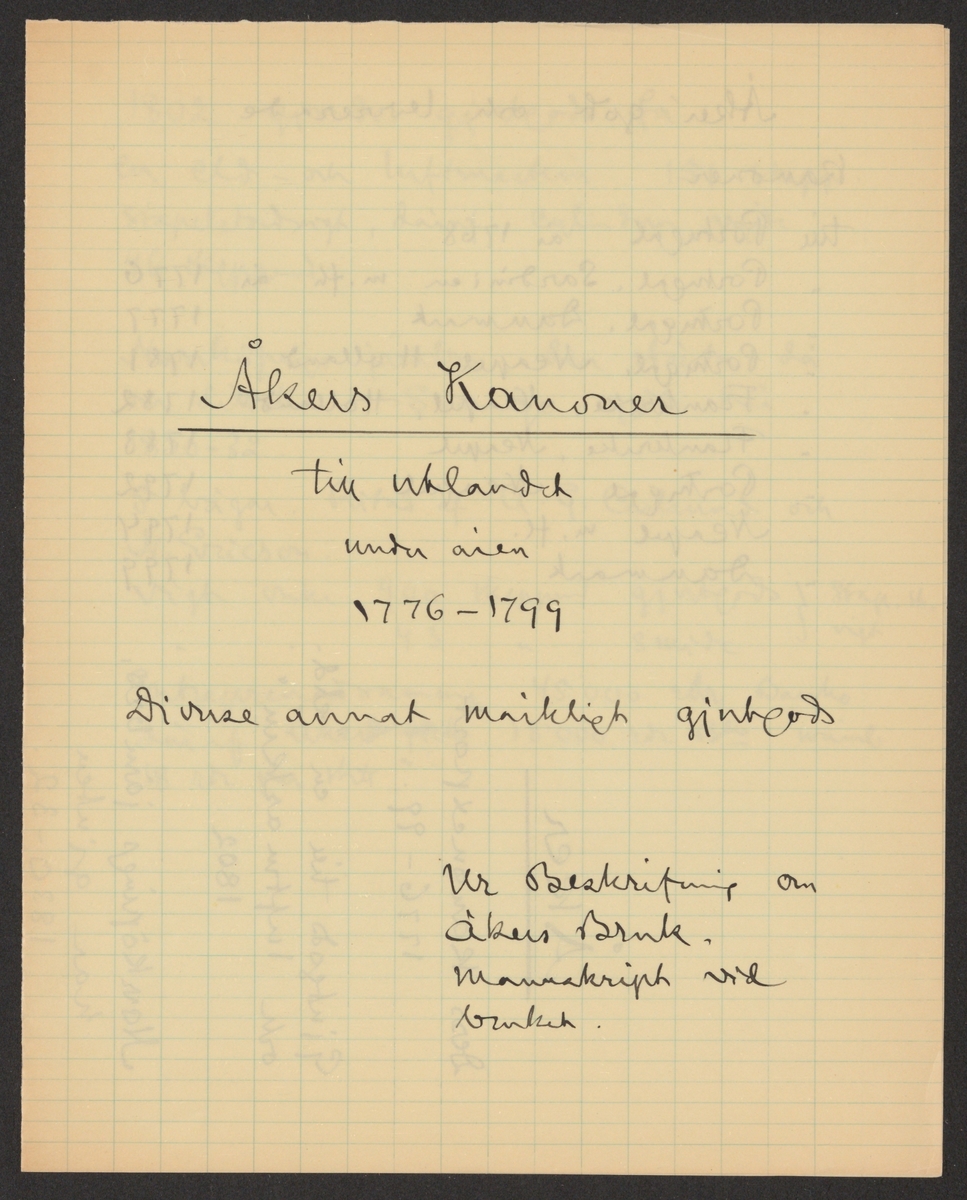 Åkers Kanoner
till utlandet
under åren
1776-1799
Diverse annat märkligt gjutgods
Ur Beskrifning om
Åkers Bruk.
Manuskript vid
bruket.